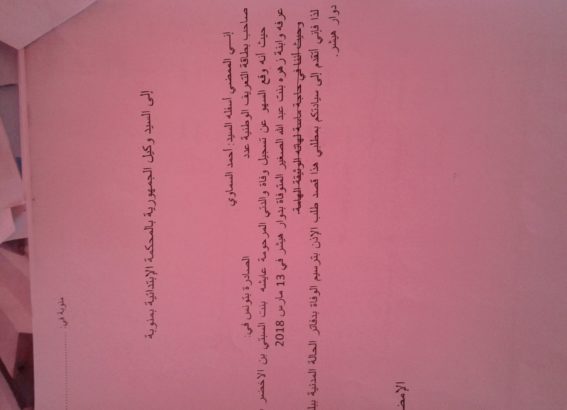 منوبة في: ........................
إلى السيد وكيل الجمهورية بالمحكمة الإبتدائية بمنوبة
إنسي الممضي أسفله السيد: أحمد السماوي
صاحب بطاقة التعريف الوطنية عدد الصادرة بتونس في:
حيث أنه وقع السهو عن تسجيل وفاة والدتي المرحومة عايشه بنت السبتي بن الأخضر
عرفه وابنة زهره بنت عبد الله الصغير المتوفاة بدوار هيشر في 13 مارس 2018
وحيث أننا في حاجة ماسة لهاته الوثيقة الهامة.
لذا فإني أتقدم إلى سيادتكم بمطلبي هذا قصد طلب الإذن بترسيم الوفاة بدفاتر الحالة المدنية
دوار هيشر.